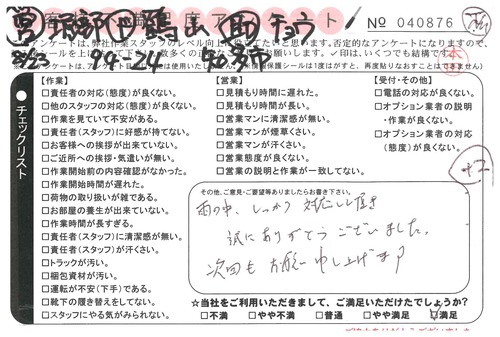 No 040876
本アンケートは、弊社作業スタッフのレベル向上に役立てたいと思います。否定的なアンケートになりますので、
チェックリスト
【作業】
□責任者の対応(態度)が良くない。
□他のスタッフの対応(態度)が良くない。
□作業を見ていて不安がある。
□責任者(スタッフ)に好感が持てない。
□お客様への挨拶が出来ていない。
□ご近所への挨拶・気遣いが無い。
□作業開始前の内容確認がなかった。
□作業開始時間が遅れた。
□荷物の取り扱いが雑である。
□お部屋の養生が出来ていない。
□作業時間が長すぎる。
□責任者(スタッフ)に清潔感が無い。
□責任者(スタッフ)が汗くさい。
□トラックが汚い。
□梱包資材が汚い。
□運転が不安(下手)である。
□靴下の履き替えをしてない。
□スタッフにやる気がみられない。
【営業】
□見積もり時間に遅れた。
□見積もり時間が長い。
□営業マンに清潔感が無い。
□営業マンが煙草くさい。
□営業マンが汗くさい。
□営業態度が良くない。
□営業の説明と作業が一致してない。
【受付・その他】
□電話の対応が良くない。
□オプション業者の説明
・作業が良くない。
□オプション業者の対応
(態度)が良くない。
+2
その他、ご意見・ご要望等ありましたらお書き下さい。
雨の中、しっかり対応して頂き
誠にありがとうございました。
次回もお願い申し上げます
☆当社をご利用いただきまして、ご満足いただけたでしょうか?
□不満 □やや不満 □普通 □やや満足 ☑満足